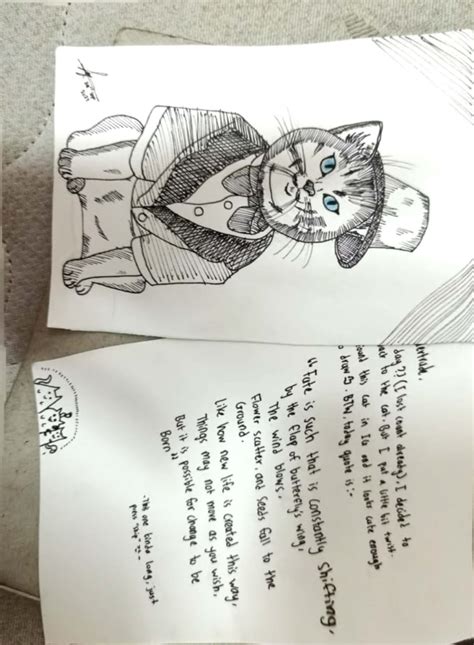 day ?) (I lost count already). I decided to
back to the cat. But I put a little bit twist.
found this cat in IG and it looks cute enough
o draw. BTW, today quote is :-
"Fate is such that is constantly shifting,
by the flap of butterfly's wing,
The wind blows.
Flower scatter, and seeds fall to the
Ground.
like how new life is created this way,
Things may not move as you wish,
But it is possible for change to be
Born"
-This one kinda long, just